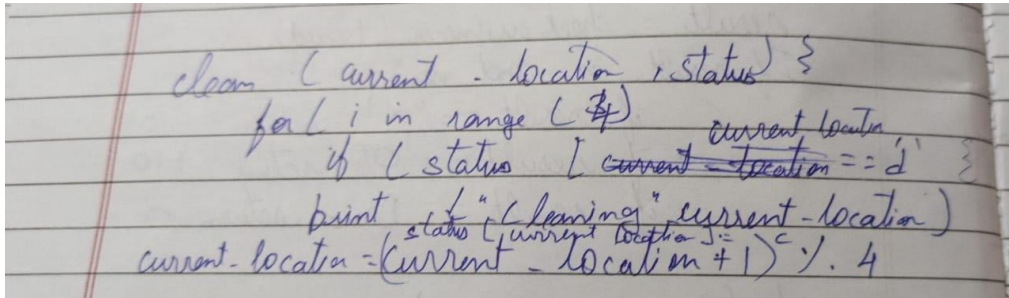 clean (current - location , status) {
for ( i in range ( 4)
current location
if ( status [ current - location == 'd' {
print ( "Cleaning" current - location )
status [ current location ] = c
current - location = (current - location + 1) % 4